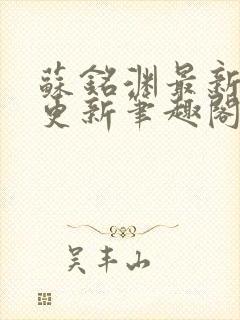 蘇銘淵最新
更新筆趣閣
吴丰山